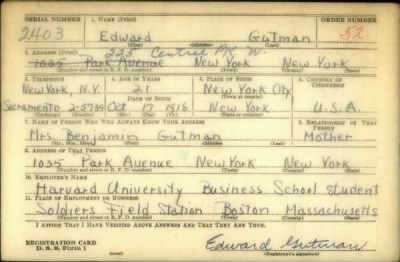 SERIAL NUMBER 1. NAME (Print) ORDER NUMBER
2403 Edward Gutman 52
(First) (Middle) (Last)
2. ADDRESS (Print) 225 Central PK W.
1035 Park Avenue New York New York
(Number and street or R. F. D. number) (Town) (County) (State)
3. TELEPHONE 4. AGE IN YEARS 5. PLACE OF BIRTH 6. COUNTRY OF CITIZENSHIP
New York, N.Y. 21 New York City
DATE OF BIRTH
Sacramento 2-5735 Oct 17 1918 New York U.S.A.
(Exchange) (Number) (Mo.) (Day) (Yr.) (State or country)
7. NAME OF PERSON WHO WILL ALWAYS KNOW YOUR ADDRESS 8. RELATIONSHIP OF THAT PERSON
Mrs. Benjamin Gutman Mother
(Mr., Mrs., Miss) (First) (Middle) (Last)
9. ADDRESS OF THAT PERSON
1035 Park Avenue New York New York
(Number and street or R. F. D. number) (Town) (County) (State)
10. EMPLOYER'S NAME
Harvard University Business School Student
11. PLACE OF EMPLOYMENT OR BUSINESS
Soldiers Field Station Boston Massachusetts
(Number and street or R. F. D. number) (Town) (County) (State)
I AFFIRM THAT I HAVE VERIFIED ABOVE ANSWERS AND THAT THEY ARE TRUE.
REGISTRATION CARD
D. S. S. Form 1 (over) Edward Gutman
(Registrant's signature)